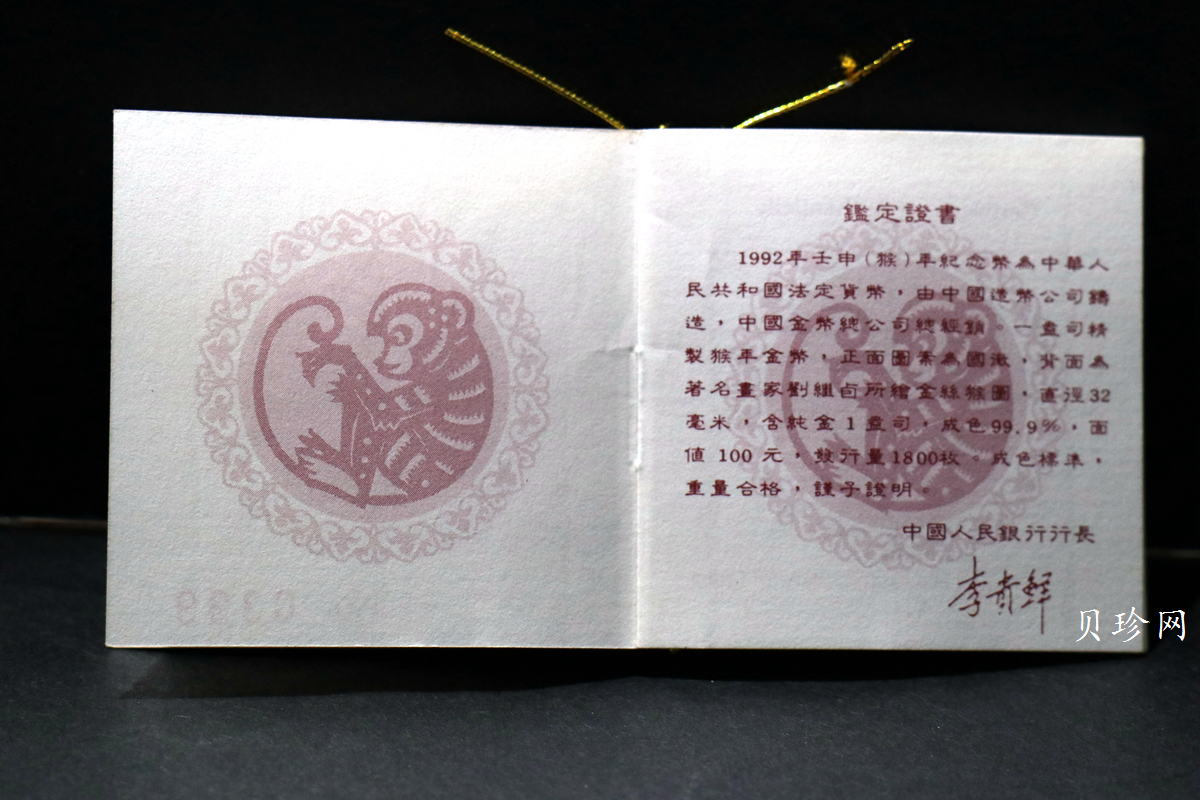 鑑定證書
1992年壬申(猴)年紀念幣為中華人
民共和國法定貨幣，由中國造幣公司鑄
造，中國金幣總公司總經銷。一盎司精
製猴年金幣，正面圖案為國徽，背面為
著名畫家劉繼卣所繪金絲猴圖，直徑32
毫米，含純金1盎司，成色99.9%，面
值100元，發行量1800枚。成色標準，
重量合格，謹予證明。
中國人民銀行行長
李貴鮮
贝珍网